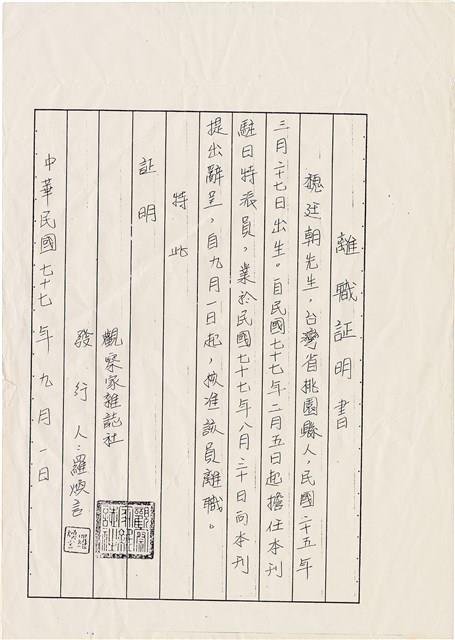 離職証明書
魏廷朝先生，台灣省桃園縣人，民國二十五年
三月二十七日出生。自民國七十七年二月五日起擔任本刊
駐日特派員，業於民國七十七年八月三十日向本刊
提出辭呈，自九月一日起，核准該員離職。
特此
証明
觀察家雜誌社
發行人：羅煥言
中華民國七十七年九月一日